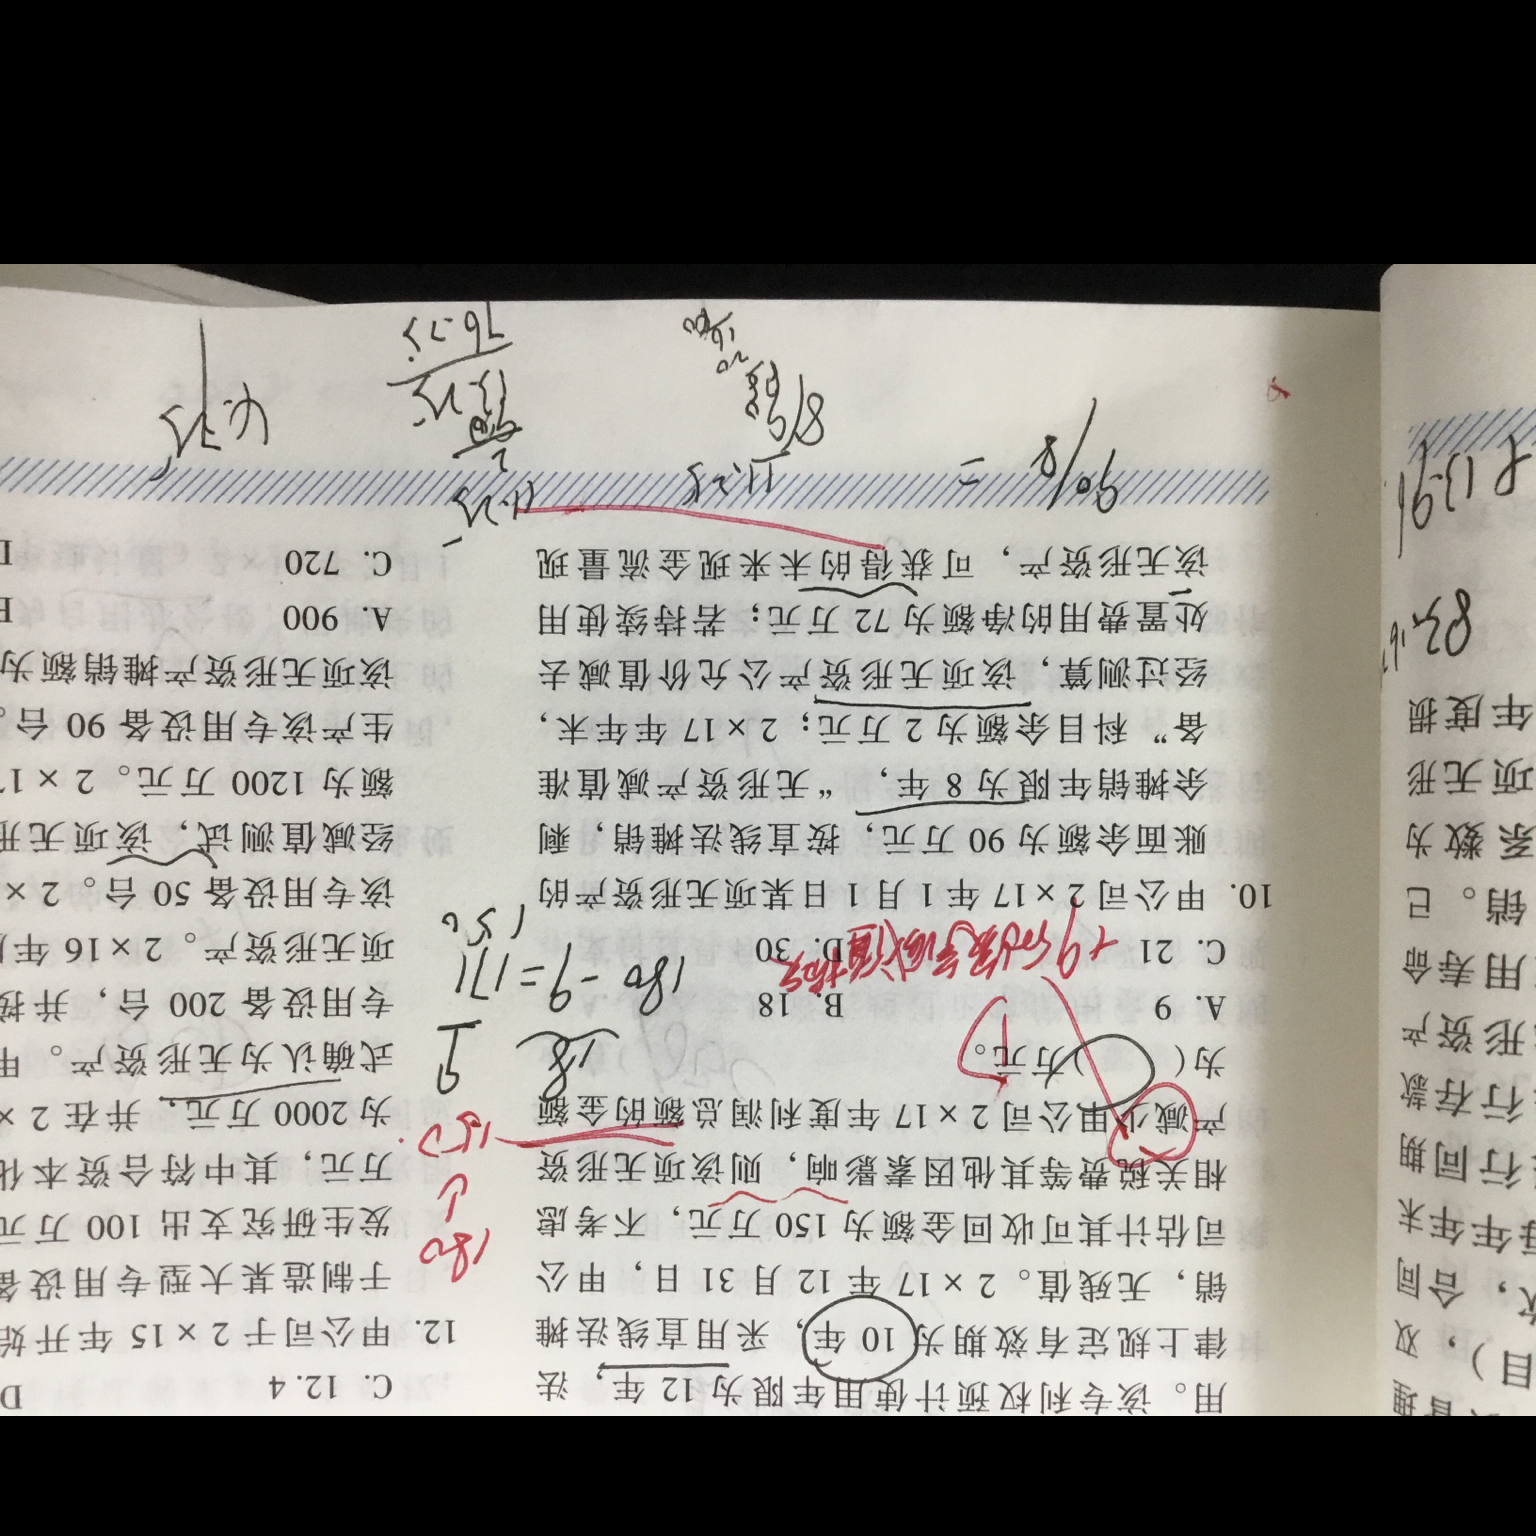 用。该专利权预计使用年限为 12 年，法
律上规定有效期为 10 年，采用直线法摊
销，无残值。2×17 年 12 月 31 日，甲公
司估计其可收回金额为 150 万元，不考虑
相关税费等其他因素影响，则该项无形资
产减少甲公司 2×17 年度利润总额的金额
为（ ）万元。
A. 9 B. 18
C. 21 D. 30
10. 甲公司 2×17 年 1 月 1 日某项无形资产的
账面余额为 90 万元，按直线法摊销，剩
余摊销年限为 8 年，“无形资产减值准
备”科目余额为 2 万元；2×17 年年末，
经过测算，该项无形资产公允价值减去
处置费用的净额为 72 万元；若持续使用
该无形资产，可获得的未来现金流量现
180
150
18
9
180-9=171
150
90/8 = 11.25
11.25
2
13.25
76.75
C. 12.4 D
12. 甲公司于 2×15 年开始
于制造某大型专用设备
发生研究支出 100 万元
万元，其中符合资本化
为 2000 万元，并在 2×
式确认为无形资产。甲
专用设备 200 台，并按
项无形资产。2×16 年
该专用设备 50 台。2×
经减值测试，该项无形
额为 1200 万元。2×1
生产该专用设备 90 台。
该项无形资产摊销额为
A. 900
C. 720
目），双
，合同
年年末
行同期
行存款
形资产
用寿命
销。已
系数为
项无形
年度损